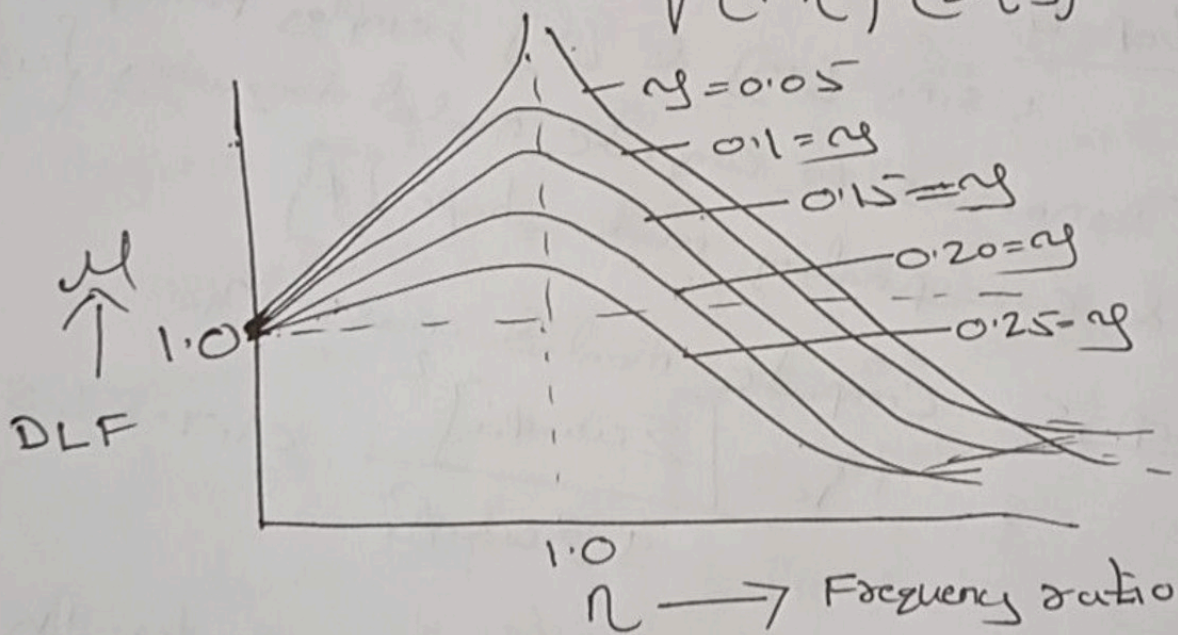 = 0.05
0.1 =
0.15 =
0.20 =
0.25 -
μ
1.0
DLF
1.0
η → Frequency ratio